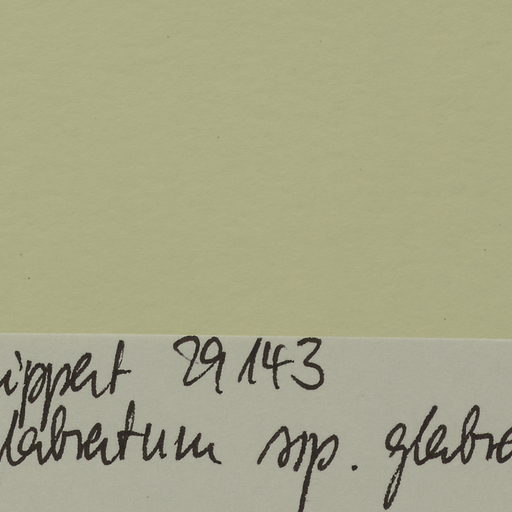 ippert 29143
labratum ssp. glabra